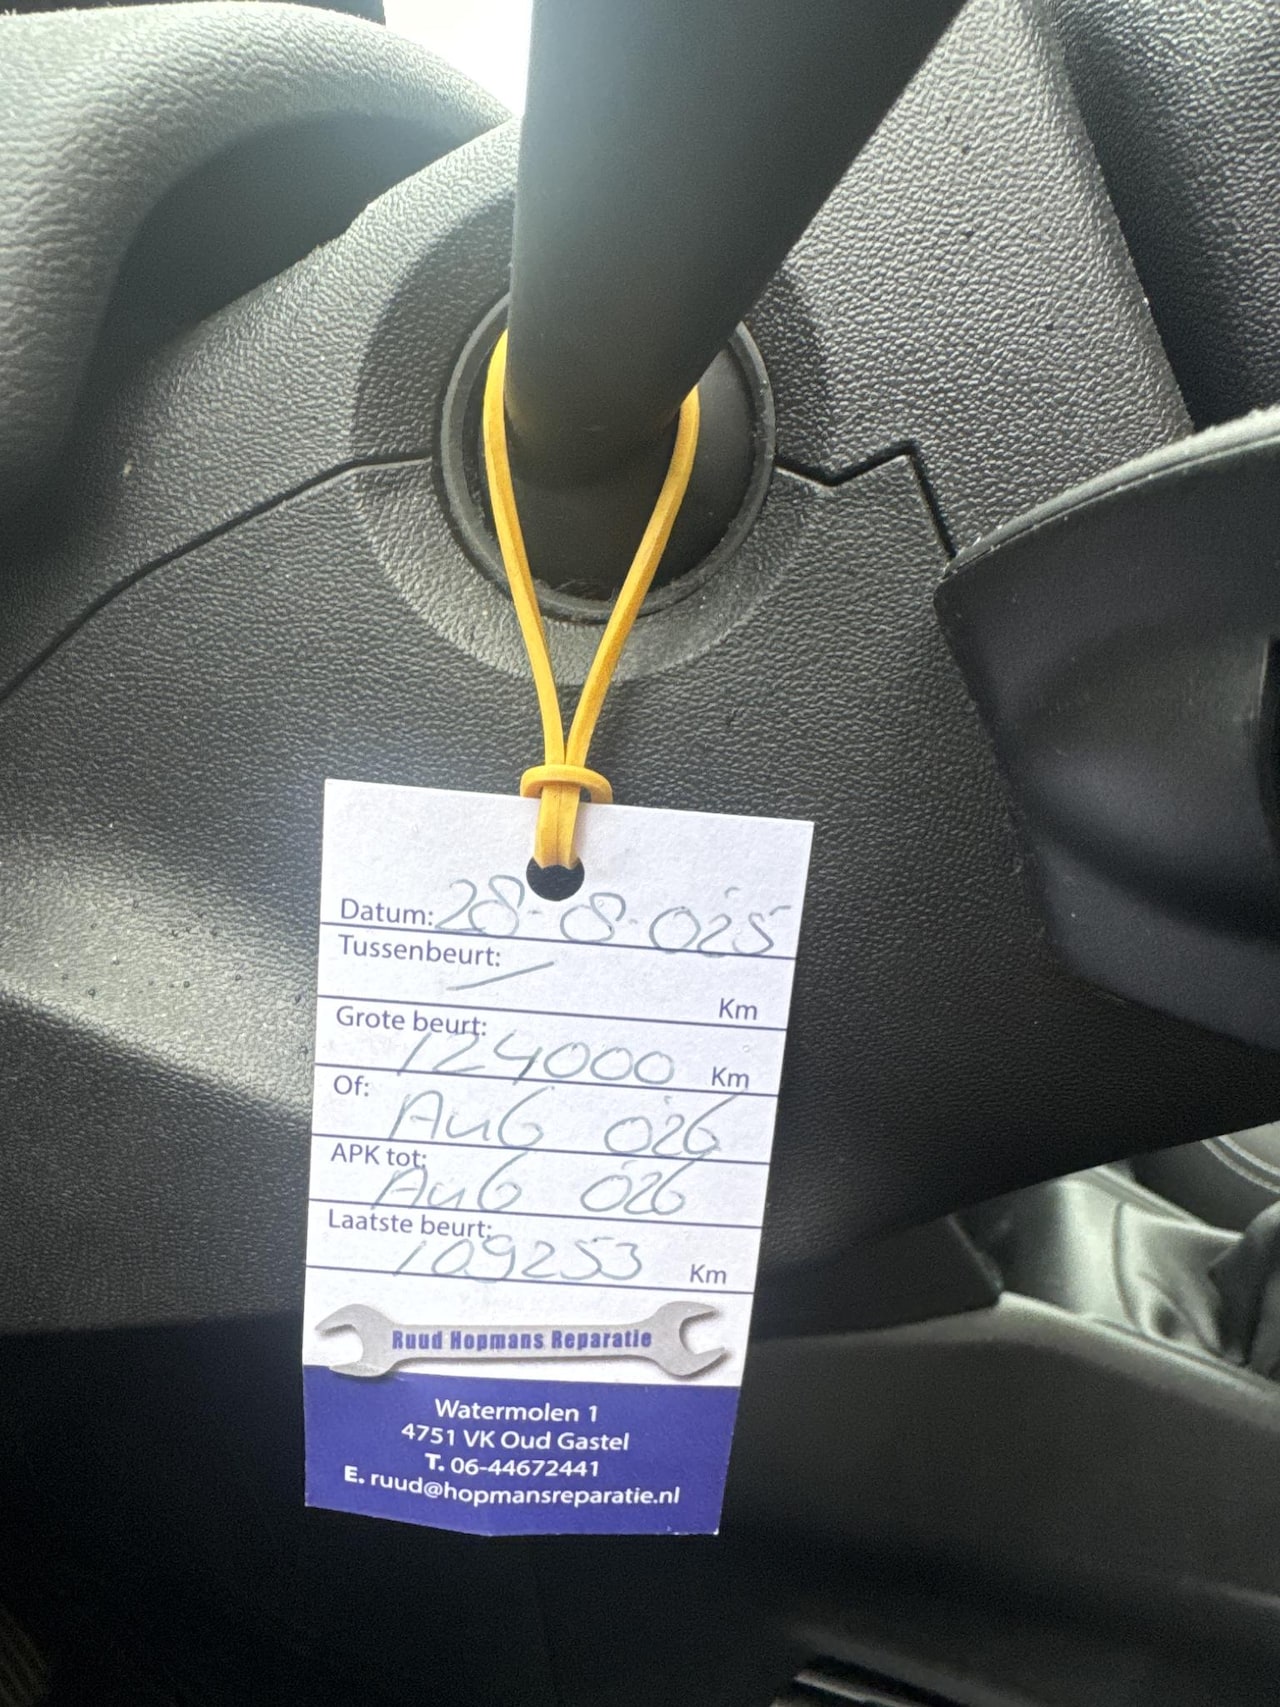 Datum: 28-8-025
Tussenbeurt: / Km
Grote beurt: 124000 Km
Of: AuG 026
APK tot: AuG 026
Laatste beurt: 109253 Km
Ruud Hopmans Reparatie
Watermolen 1
4751 VK Oud Gastel
T. 06-44672441
E. ruud@hopmansreparatie.nl